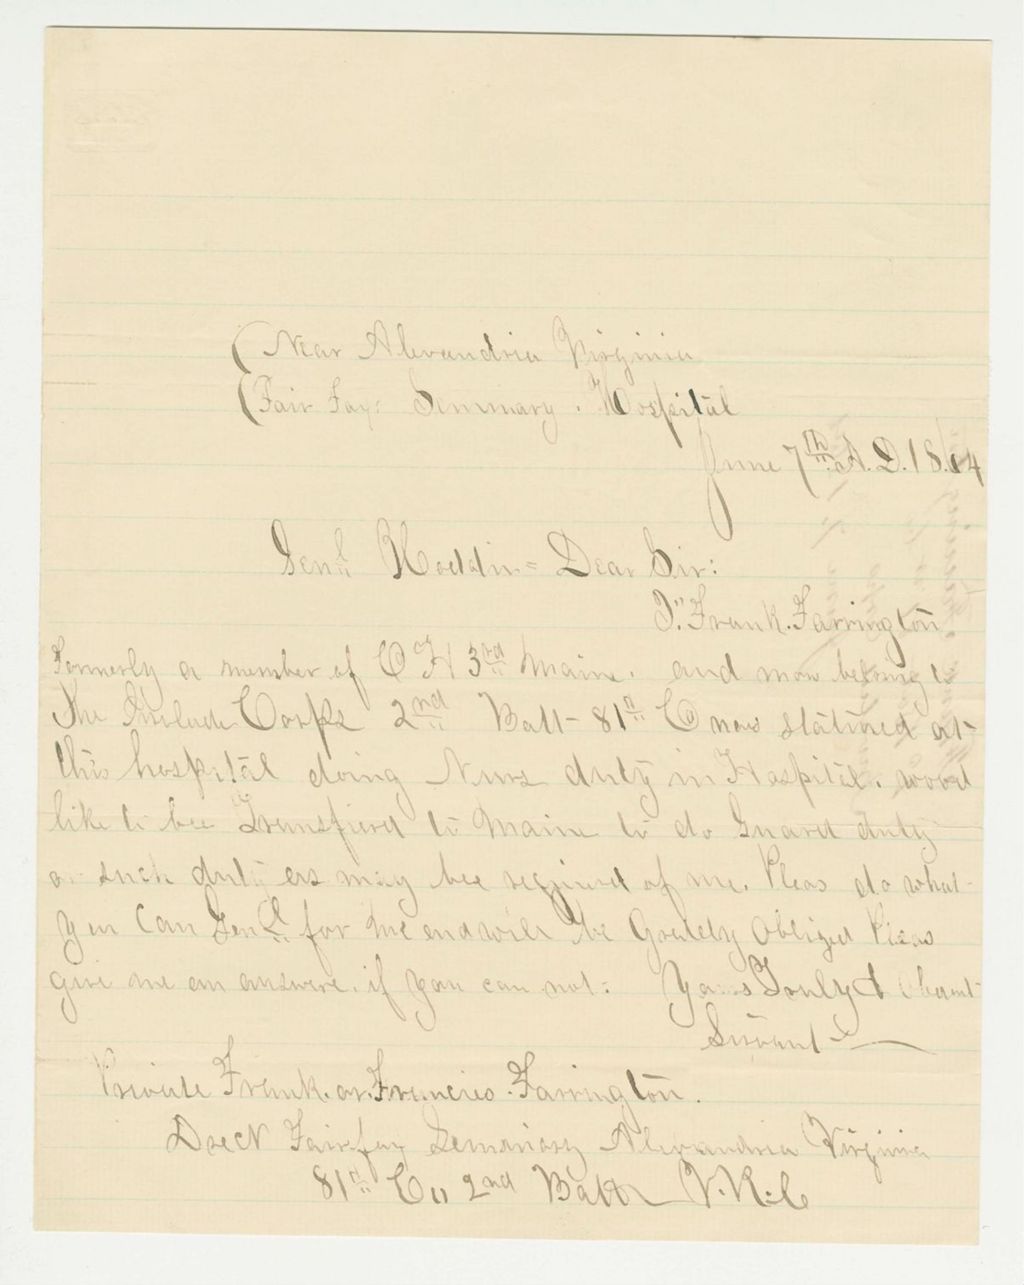 (Near Alexandria Virginia
(Fair Fax: Semmary. Hospital
June 7th A.D. 1864
Genl Hoddin = Dear Sir:
I" Frank. Farrington
Formerly a member of Co H 3rd Maine. and now belong to
the Corps 2nd Batt - 81st Co now stationed at
this hospital doing Nurs duty in Hospital. wood
like to bee Transfierd to Maine to do Guard duty
or such duty as may bee required of me. Pleas do what
you Can Genl for me and will be Greatly Obliged Pleas
give me an answere. if you can not: Yours Truly &
Servant
Private Frank. or. Francies. Farrington.
Fairfax Semmary Alexandria Virginia
81st Co,, 2nd Batt V.R.C